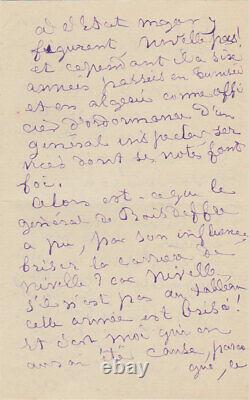 a l'Etat major y
figurent, Nivelle pas!
et cependant il a six
années passées en Tunisie
et en algérie comme offi
cier d'ordonnance d'un
général inspecteur ser
vices dont ses notes font
foi.
Alors est-ce que le
général de Boisdeffre
a pu, par son influence
briser la carrière de
Nivelle? car Nivelle
s'il n'est pas au tableau
cette année est brisé!
Et c'est moi qui en
aurai été cause, parce
que, le
© 112